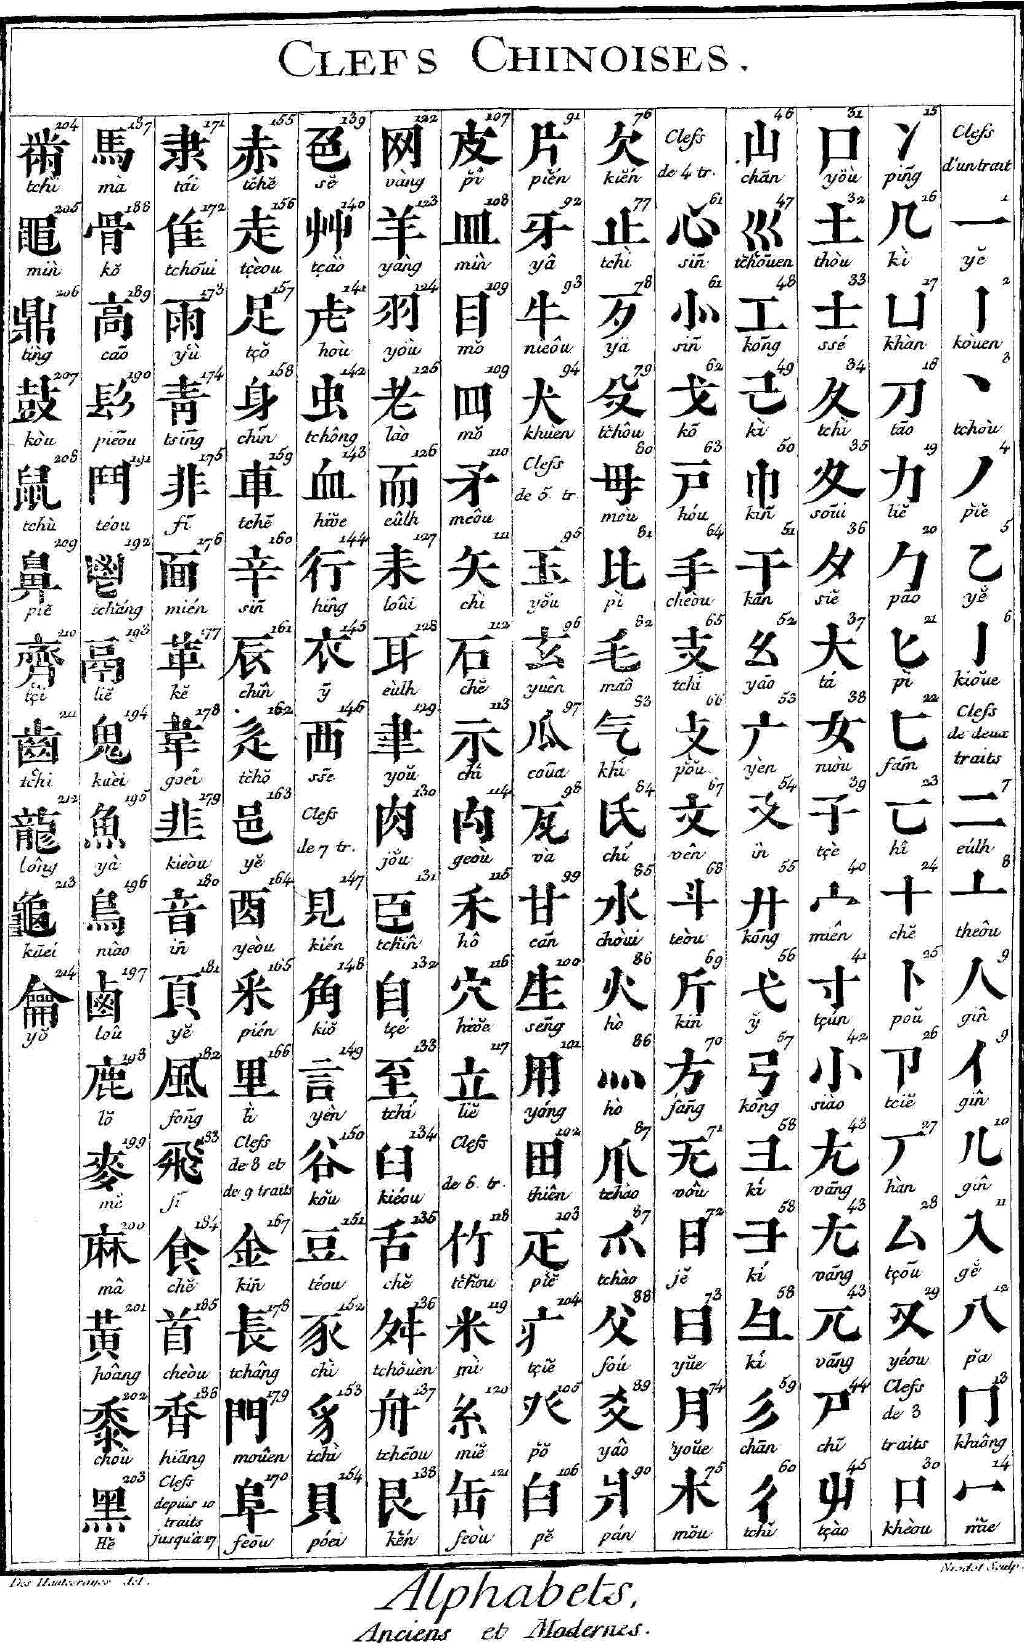 CLEFS CHINOISES.
Clefs
d'un trait
1
一
yĕ
2
丨
kòuen
3
丶
tchòu
4
丿
pi̎ĕ
5
乙
yĕ
6
亅
kioŭe
Clefs
de deux
traits
7
二
eúlh
8
亠
theôu
9
人
gîn
9
亻
gîn
10
儿
gîn
11
入
gĕ
12
八
pă
13
冂
khiông
14
冖
mĭe
15
冫
pīng
16
几
kì
17
凵
khàn
18
刀
tāo
19
力
liĕ
20
勹
pāo
21
匕
pì
22
匚
fām
23
匸
hî
24
十
chĕ
25
卜
poŭ
26
卩
tciĕ
27
厂
hàn
28
厶
tçōu
29
又
yéou
Clefs
de 3
traits
30
口
khèou
31
囗
yöù
32
土
thòu
33
士
ssé
34
夂
tchì
35
夊
soūi
36
夕
siĕ
37
大
tá
38
女
niù
39
子
tçè
40
宀
miên
41
寸
tçún
42
小
siào
43
尢
vāng
43
尢
vāng
43
兀
vāng
44
尸
chī
45
屮
tçào
46
山
chān
47
巛
tchōuen
48
工
kōng
49
己
kì
50
巾
kīn
51
干
kān
52
幺
yāo
53
广
yèn
54
廴
ìn
55
廾
kōng
56
弋
ў
57
弓
kōng
58
彐
kí
58
彐
kí
58
彑
kí
59
彡
chān
60
彳
tchĭ
Clefs
de 4 tr.
61
心
sīn
61
㣺
sīn
62
戈
kō
63
戸
hóu
64
手
cheòu
65
支
tchī
66
攴
pŏu
67
文
vên
68
斗
teòu
69
斤
kīn
70
方
fāng
71
无
voû
72
日
jĕ
73
曰
yŭe
74
月
yoŭe
75
木
mŏu
76
欠
kiĕn
77
止
tchì
78
歹
yă
79
殳
tchôu
80
毋
moù
81
比
pì
82
毛
maô
83
气
khí
84
氏
chí
85
水
chòui
86
火
hò
86
灬
hò
87
爪
tchào
87
爫
tchào
88
父
foú
89
爻
yaô
90
爿
pán
91
片
pién
92
牙
yâ
93
牛
nieôu
94
犬
khuèn
Clefs
de 5. tr
95
玉
yŏu
96
玄
yuên
97
瓜
coūa
98
瓦
và
99
甘
cān
100
生
sēng
101
用
yóng
102
田
thiên
103
疋
piĕ
104
疒
tçiĕ
105
癶
pŏ
106
白
pĕ
107
皮
pî
108
皿
mìn
109
目
mŏ
109
罒
mŏ
110
矛
meôu
111
矢
chì
112
石
chĕ
113
示
chí
114
禸
geoù
115
禾
hô
116
穴
hiŏe
117
立
liĕ
Clefs
de 6. tr.
118
竹
tchŏu
119
米
mì
120
糸
miĕ
121
缶
feòu
122
网
vàng
123
羊
yâng
124
羽
yòu
125
老
lào
126
而
eûlh
127
耒
loûi
128
耳
eùlh
129
聿
yoŭ
130
肉
jŏu
131
臣
tchîn
132
自
tçé
133
至
tchí
134
臼
kiéou
135
舌
chĕ
136
舛
tchŏuèn
137
舟
tchēou
138
艮
kĕn
139
色
sĕ
140
艸
tçaŏ
141
虍
hoù
142
虫
tchông
143
血
hiŏe
144
行
hîng
145
衣
ȳ
146
西
sīe
Clefs
de 7 tr.
147
見
kién
148
角
kiŏ
149
言
yên
150
谷
kŏu
151
豆
téou
152
豕
chì
153
豸
tchì
154
貝
póei
155
赤
tchĕ
156
走
tçèou
157
足
tçŏ
158
身
chīn
159
車
tchē
160
辛
sīn
161
辰
chîn
162
辵
tchŏ
163
邑
yĕ
164
酉
yeòu
165
釆
pién
166
里
lì
Clefs
de 8 et
de 9 traits
167
金
kīn
178
長
tchâng
179
門
moûen
170
阜
feōu
171
隶
tái
172
隹
tchōui
173
雨
yù
174
青
tsīng
175
非
fī
176
面
mién
177
革
kĕ
178
韋
goeî
179
韭
kieòu
180
音
īn
181
頁
yĕ
182
風
fōng
83
飛
fī
184
食
chĕ
185
首
cheòu
186
香
hiāng
Clefs
depuis 10
traits
jusqu'à 17
187
馬
mà
188
骨
kŏ
189
高
cāo
190
髟
piēou
191
鬥
téou
192
鬯
tchâng
193
鬲
liĕ
194
鬼
kuèi
195
魚
yù
196
鳥
niào
197
鹵
loû
198
鹿
lŏ
199
麥
mĕ
200
麻
mâ
201
黄
hoâng
202
黍
choù
203
黑
Hĕ
204
黹
tchì
205
黽
mìn
206
鼎
tìng
207
鼓
kòu
208
鼠
tchù
209
鼻
piĕ
210
齊
tçî
211
齒
tchì
212
龍
loîng
213
龜
kūei
214
龠
yŏ
Des Hauterayes del.
Niodot Sculp.
Alphabets,
Anciens et Modernes.